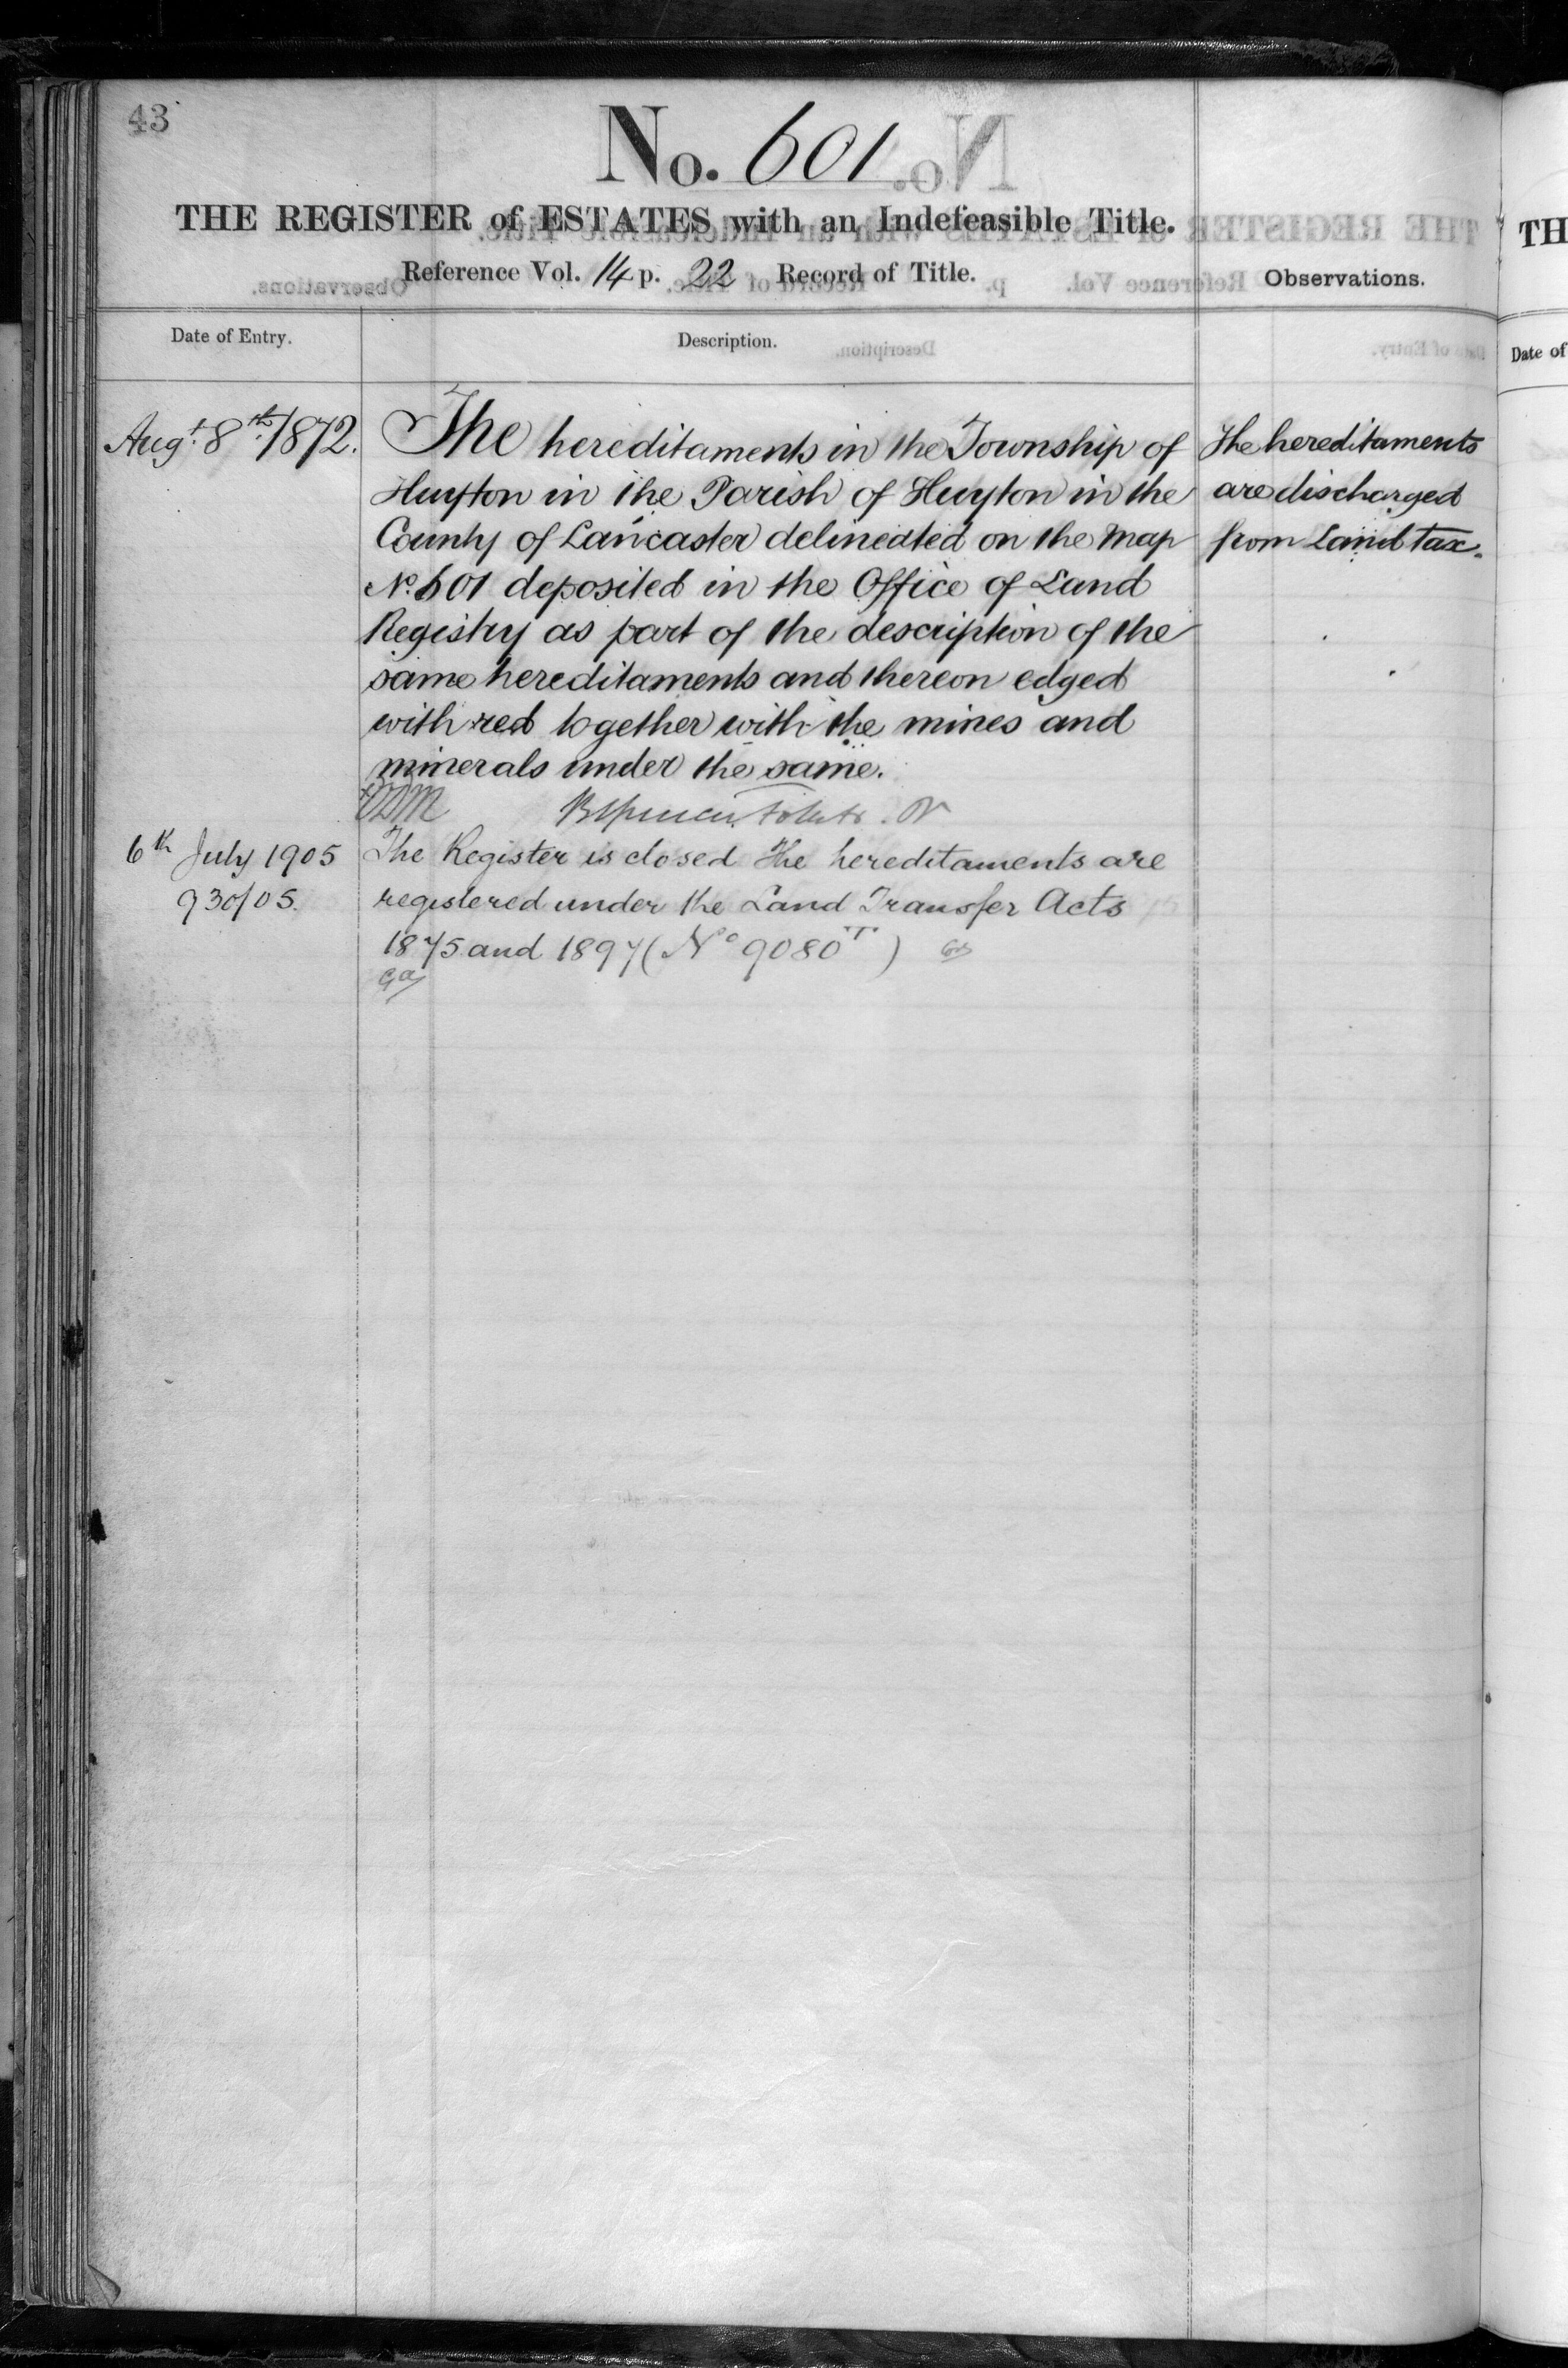 43
No. 601
THE REGISTER of ESTATES with an Indefeasible Title.
Reference Vol. 14 p. 22 Record of Title.
Observations.
Date of Entry.
Description.
Augt. 8th. 1872.
The hereditaments in the Township of
Huyton in the Parish of Huyton in the
County of Lancaster delineated on the Map
No. 601 deposited in the Office of Land
Registry as part of the description of the
same hereditaments and thereon edged
with red together with the mines and
minerals under the same.
The hereditaments
are discharged
from Land tax.
6th July 1905
930/05.
The Register is closed The hereditaments are
registered under the Land Transfer Acts
1875 and 1897 (No 9080 T.)
TH
Date of